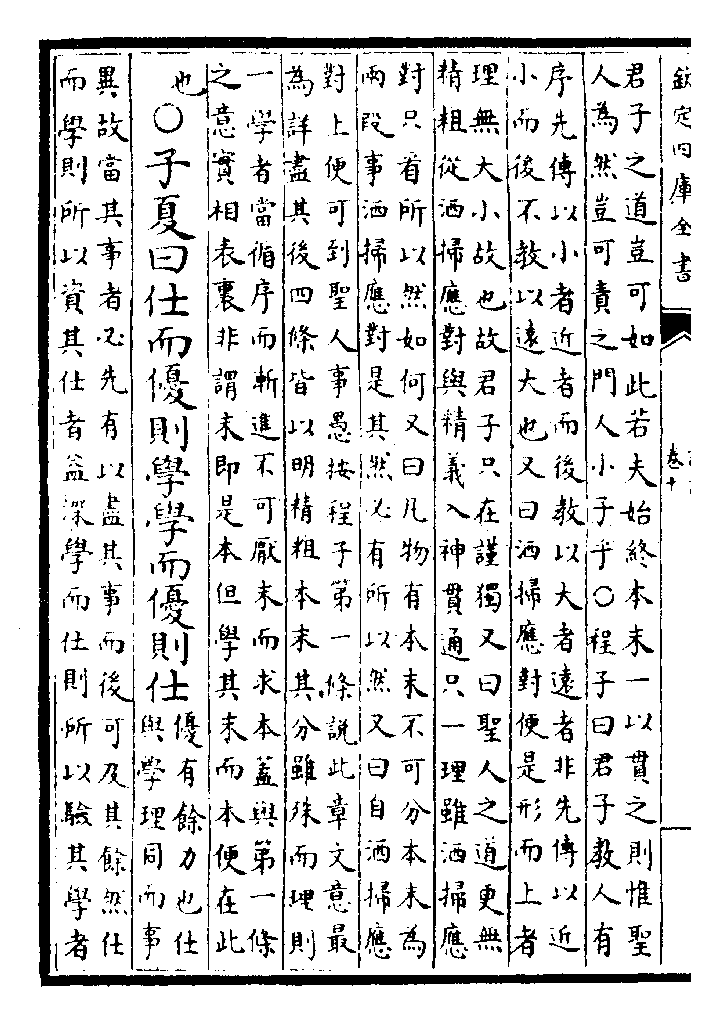 欽定四庫全書
卷十
君子之道豈可如此若夫始終本末一以貫之則惟聖
人為然豈可責之門人小子乎○程子曰君子教人有
序先傳以小者近者而後教以大者遠者非先傳以近
小而後不教以遠大也又曰洒掃應對便是形而上者
理無大小故也故君子只在謹獨又曰聖人之道更無
精粗從洒掃應對與精義入神貫通只一理雖洒掃應
對只看所以然如何又曰凡物有本末不可分本末為
兩段事洒掃應對是其然必有所以然又曰自洒掃應
對上便可到聖人事愚按程子第一條說此章文意最
為詳盡其後四條皆以明精粗本末其分雖殊而理則
一學者當循序而漸進不可厭末而求本蓋與第一條
之意實相表裏非謂末即是本但學其末而本便在此
也○子夏曰仕而優則學學而優則仕
優有餘力也仕
與學理同而事
異故當其事者必先有以盡其事而後可及其餘然仕
而學則所以資其仕者益深學而仕則所以驗其學者